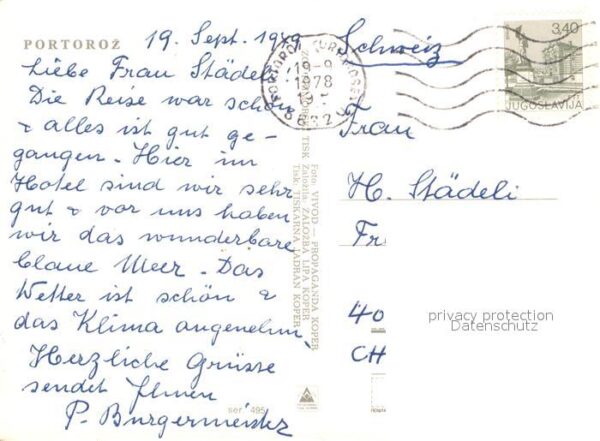 PORTOROŽ
19. Sept. 1979
Liebe Frau Städeli
Die Reise war schön
& alles ist gut ge-
gangen. Hier im
Hotel sind wir sehr
gut & vor uns haben
wir das wunderbare
blaue Meer. Das
Wetter ist schön &
das Klima angenehm.
Herzliche Grüsse
sendet Ihnen
P. Burgermeister
PORTOROŽ
19-9
1978
19
6632
Foto: VIVOD — PROPAGANDA KOPER
Založila: ZALOŽBA LIPA KOPER
Tisk: TISKARNA JADRAN KOPER
TISK
ser. 495
3,40
JUGOSLAVIJA
Schweiz
Frau
H. Städeli
Fr
40
CH
privacy protection
Datenschutz